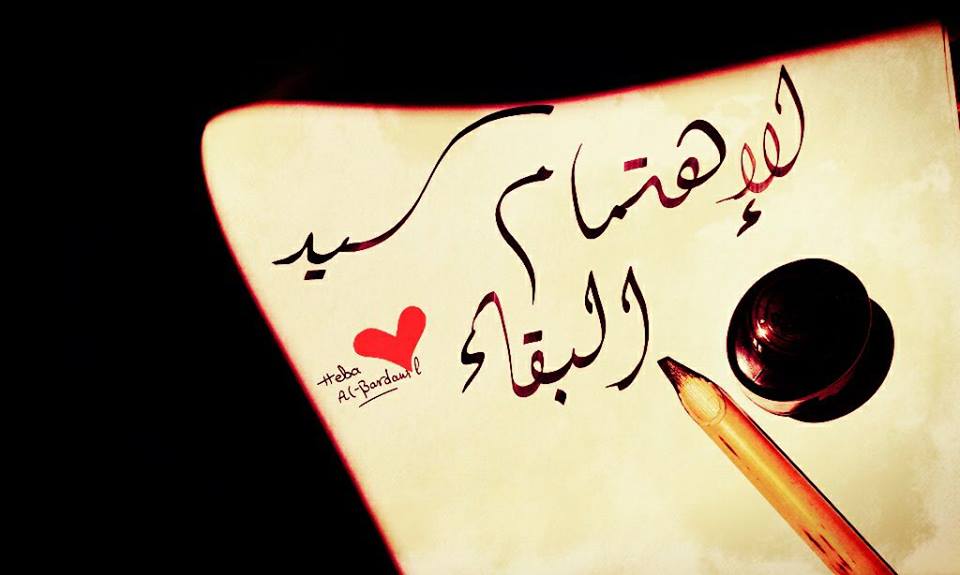 الإهتمام سيد
البقاء
Heba
Al-Bardawil